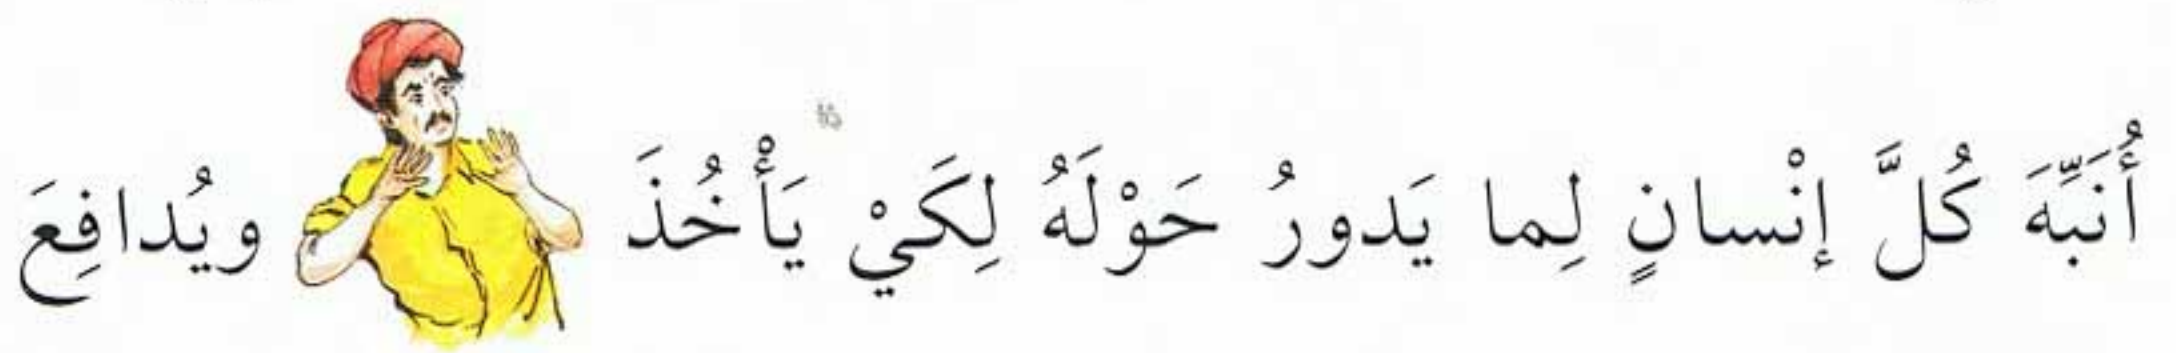 أُنَبِّهَ كُلَّ إِنْسانٍ لِما يَدورُ حَوْلَهُ لِكَيْ يَأْخُذَ ويُدافِعَ